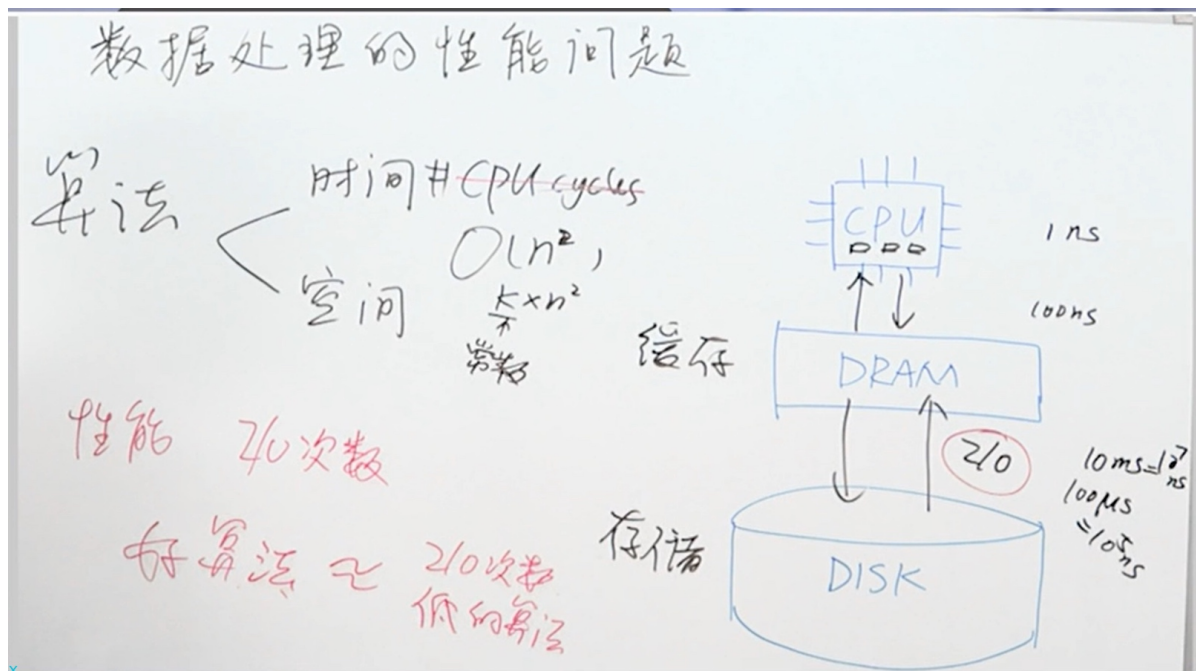 数据处理的性能问题
算法
时间 #CPU cycles
O(n²)
空间
k×n²
常数
性能 I/O次数
好算法 ≈ I/O次数
低的算法
CPU
1 ns
100ns
缓存
DRAM
I/O
10ms=10⁷
ns
100μs
=10⁵
ns
存储
DISK